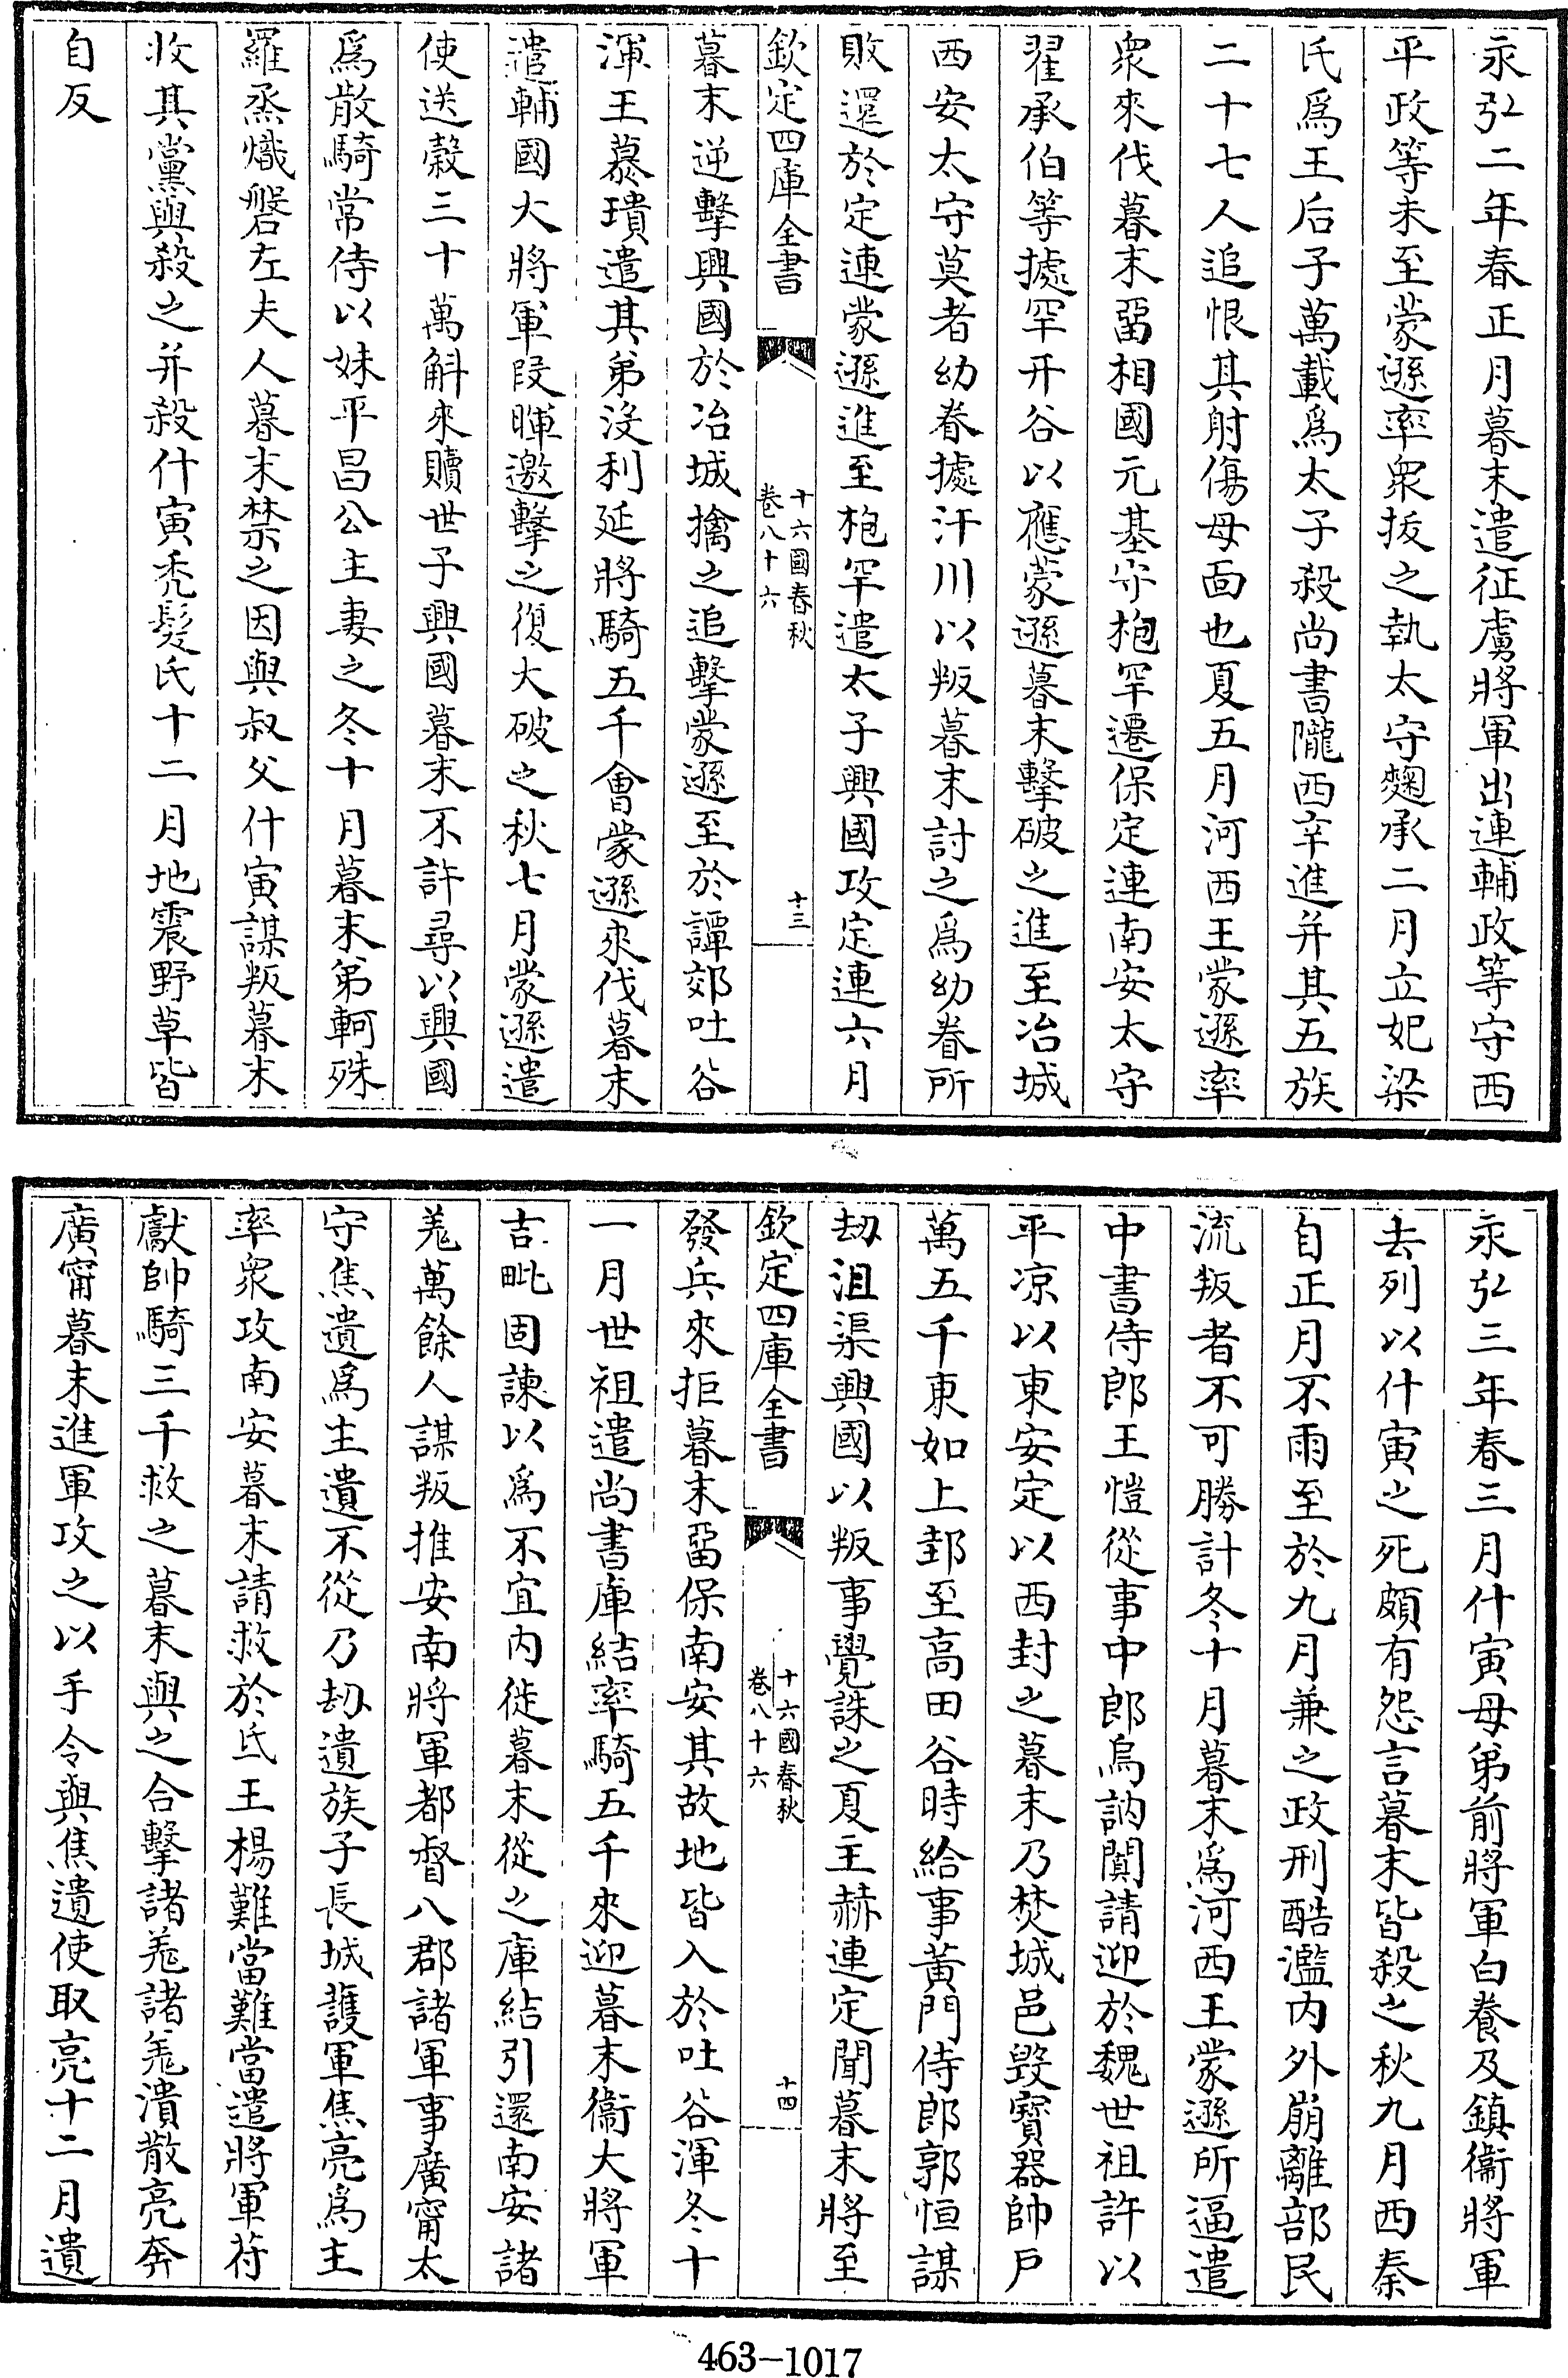 永弘二年春正月暮末遣征虜將軍出連輔政等守西
平政等未至蒙遜率衆拔之執太守麴承二月立妃梁
氏爲王后子萬載爲太子殺尚書隴西辛進并其五族
二十七人追恨其射傷母面也夏五月河西王蒙遜率
衆來伐暮末留相國元基守枹罕遷保定連南安太守
翟承伯等據罕幵谷以應蒙遜暮末擊破之進至冶城
西安太守莫者幼眷據汗川以叛暮末討之爲幼眷所
敗還於定連蒙遜進至枹罕遣太子興國攻定連六月
欽定四庫全書
十六國春秋
卷八十六
十三
暮末逆擊興國於冶城擒之追擊蒙遜至於譚郊吐谷
渾王慕璝遣其弟沒利延將騎五千會蒙遜來伐暮末
遣輔國大將軍段暉邀擊之復大破之秋七月蒙遜遣
使送穀三十萬斛來贖世子興國暮末不許尋以興國
爲散騎常侍以妹平昌公主妻之冬十月暮末弟軻殊
羅烝熾磐左夫人暮末禁之因與叔父什寅謀叛暮末
收其黨與殺之并殺什寅禿髮氏十二月地震野草皆
自反
永弘三年春三月什寅母弟前將軍白養及鎮衞將軍
去列以什寅之死頗有怨言暮末皆殺之秋九月西秦
自正月不雨至於九月兼之政刑酷濫内外崩離部民
流叛者不可勝計冬十月暮末爲河西王蒙遜所逼遣
中書侍郎王愷從事中郎烏訥闐請迎於魏世祖許以
平凉以東安定以西封之暮末乃焚城邑毀寶器帥戸
萬五千東如上邽至高田谷時給事黃門侍郎郭恒謀
刼沮渠興國以叛事覺誅之夏主赫連定聞暮末將至
欽定四庫全書
十六國春秋
卷八十六
十四
發兵來拒暮末留保南安其故地皆入於吐谷渾冬十
一月世祖遣尚書庫結率騎五千來迎暮末衞大將軍
吉毗固諫以爲不宜内徙暮末從之庫結引還南安諸
羗萬餘人謀叛推安南將軍都督八郡諸軍事廣甯太
守焦遺爲主遺不從乃刼遺族子長城護軍焦亮爲主
率衆攻南安暮末請救於氐王楊難當難當遣將軍苻
獻帥騎三千救之暮末與之合擊諸羗諸羗潰散亮奔
廣甯暮末進軍攻之以手令與焦遺使取亮十二月遺
463-1017